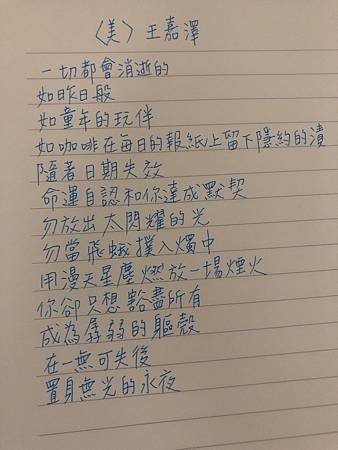 〈美〉王嘉澤
一切都會消逝的
如昨日般
如童年的玩伴
如咖啡在每日的報紙上留下隱約的漬
隨著日期失效
命運自認和你達成默契
勿放出太閃耀的光
勿當飛蛾撲入燭中
用漫天星塵燃放一場煙火
你卻只想豁盡所有
成為孱弱的軀殼
在一無可失後
置身無光的永夜